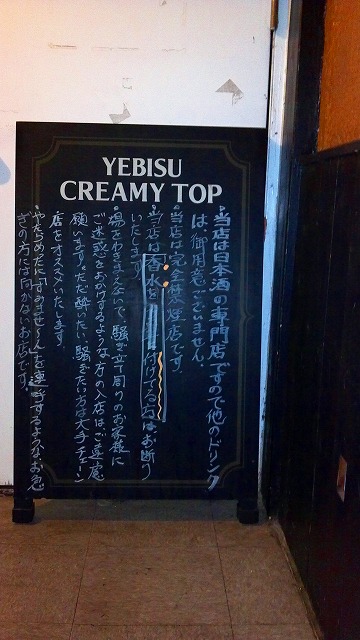 YEBISU
CREAMY TOP
・当店は日本酒の専門店ですので他のドリンク
は、御用意ございません。
・当店は完全禁煙店です。
・当店は香水を 付けてる方はお断り
いたします。
・場をわきまえないで、騒ぎ立て周りのお客様に
ご迷惑をおかけするような方の入店はご遠慮
願います。ただ酔いたい、騒ぎたい方は大手チェーン
店をオススメいたします。
・やたらめったに「すみませ〜ん」を連呼するようなお急
ぎの方は向かないお店です。